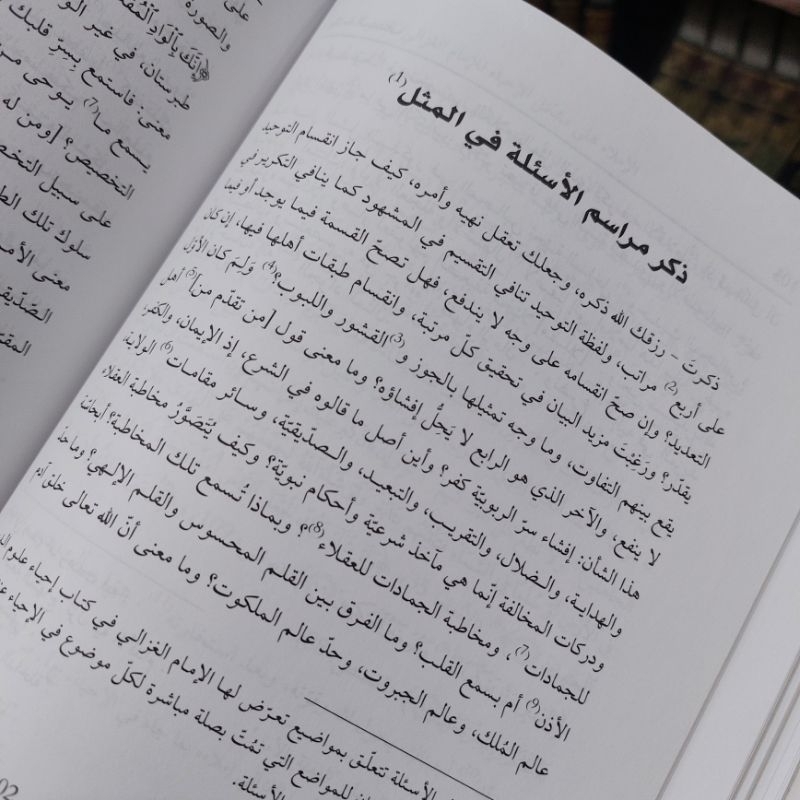 ذكر مراسم الأسئلة في المثل(1)
ذكرتَ - رزقك الله ذكره، وجعلك تعقل نهيه وأمره، كيف جاز انقسام التوحيد
على أربع(2) مراتب، ولفظة التوحيد تنافي التقسيم في المشهود كما ينافي التكرير في
التعديد؟ وإن صحّ انقسامه على وجه لا يندفع، فهل تصحّ القسمة فيما يوجد أو فيما
يقدّر؟ ورَغِبْتَ مزيد البيان في تحقيق كلّ مرتبة، وانقسام طبقات أهلها فيها، إن كان
يقع بينهم التفاوت، وما وجه تمثيلها بالجوز و(3) القشور واللبوب؟(4) وَلِمَ كان الأوّل
لا ينفع، والآخر الذي هو الرابع لا يَحِلُّ إفشاؤه؟ وما معنى قول [من تقدّم من](5) أهل
هذا الشأن: إفشاء سرّ الربوبيّة كفر؟ وأين أصل ما قالوه في الشرع، إذ الإيمان، والكفر،
والهداية، والضلال، والتقريب، والتبعيد، والصدّيقيّة، وسائر مقامات(6) الولاية،
ودركات المخالفة إنّما هي مآخذ شرعيّة وأحكام نبويّة؟ وكيف يُتَصَوَّرُ مخاطبة العقلاء
للجمادات(7)، ومخاطبة الجمادات للعقلاء(8)؟ وبماذا تُسمع تلك المخاطبة؟ أبحاسّة
الأذن(9) أم بسمع القلب؟ وما الفرق بين القلم المحسوس والقلم الإلـهي؟ وما حدّ
عالم المُلك، وعالم الجبروت، وحدّ عالم الملكوت؟ وما معنى أنّ الله تعالى خلق آدم
الأسئلة تتعلّق بمواضيع تعرّض لها الإمام الغزالي في كتاب إحياء علوم
للمواضع التي تمُتّ بصلة مباشرة لكلّ موضوع في الإحياء
الأسئلة.
على
والصورة
﴿إِنَّكَ بِالْوَادِ
طبرستان، في غير
معنى: فاستمع بِسِرّ قلبك
يسمع ما(7) يوحى
التخصيص؟ [ومن له
على سبيل
سلوك تلك
معنى